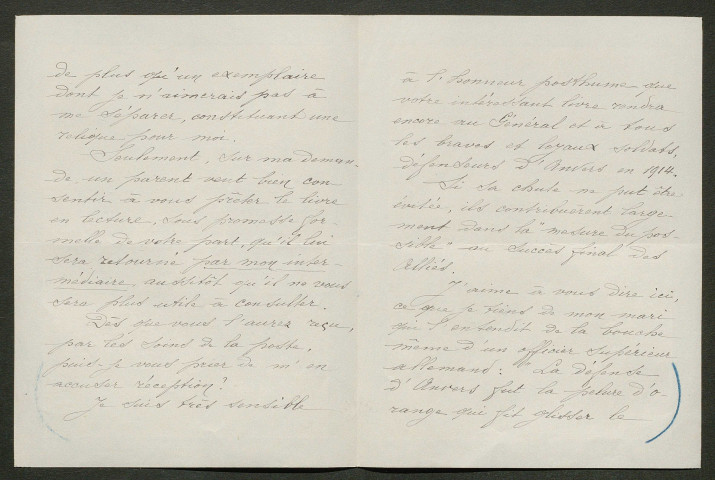 de plus qu'un exemplaire
dont je n'aimerais pas à
me séparer, constituant une
relique pour moi.
Seulement, sur ma deman-
de, un parent veut bien con
sentir à vous prêter le livre
en lecture, sous promesse for-
melle de votre part, qu'il lui
sera retourné par mon inter-
médiaire aussitôt qu'il ne vous
sera plus utile à consulter.
Dès que vous l'aurez reçu,
par les soins de la poste,
puis-je vous prier de m'en
accuser réception?
Je suis très sensible
à l'honneur posthume que
votre intéressant livre rendra
encore au Général et à tous
les braves et loyaux soldats,
défenseurs d'Anvers en 1914.
Si sa chute ne put être
évitée, ils contribuèrent large-
ment dans la "mesure du pos-
sible" au succès final des
Alliés.
J'aime à vous dire ici,
ce que je tiens de mon mari
qui l'entendit de la bouche
même d'un officier supérieur
allemand: "La défense
d'Anvers fut la pelure d'o-
range qui fit glisser le